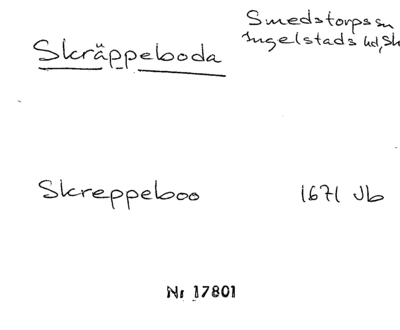 Smedstorps sn
Ingelstads hd, Sk
Skräppeboda
Skreppeboo 1671 Jb
Nr 17801